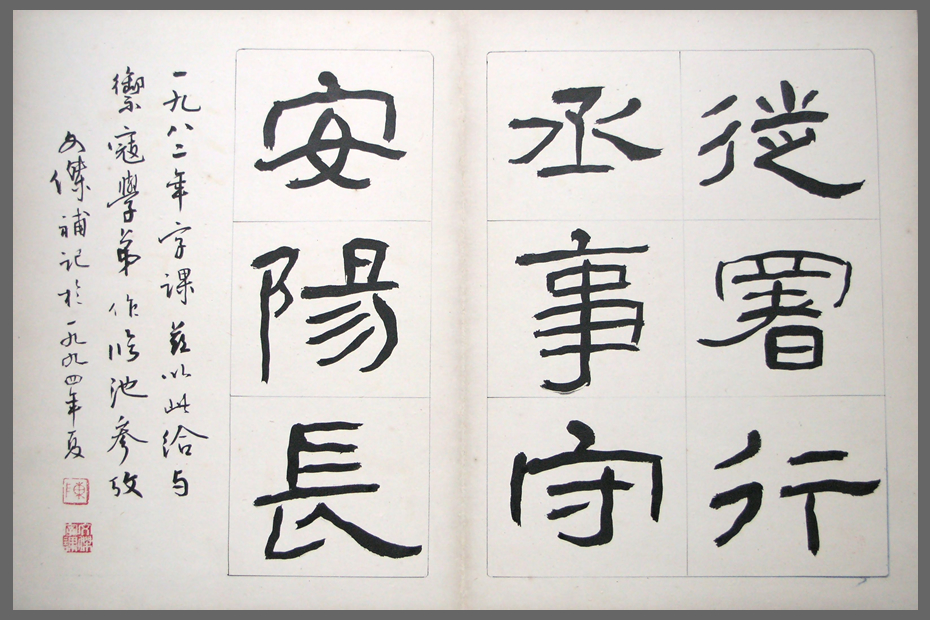 從署行
丞事守
安陽長
一九八二年字課茲以此給与
禦寇學弟作臨池參攷
文傑補記於一九九四年夏